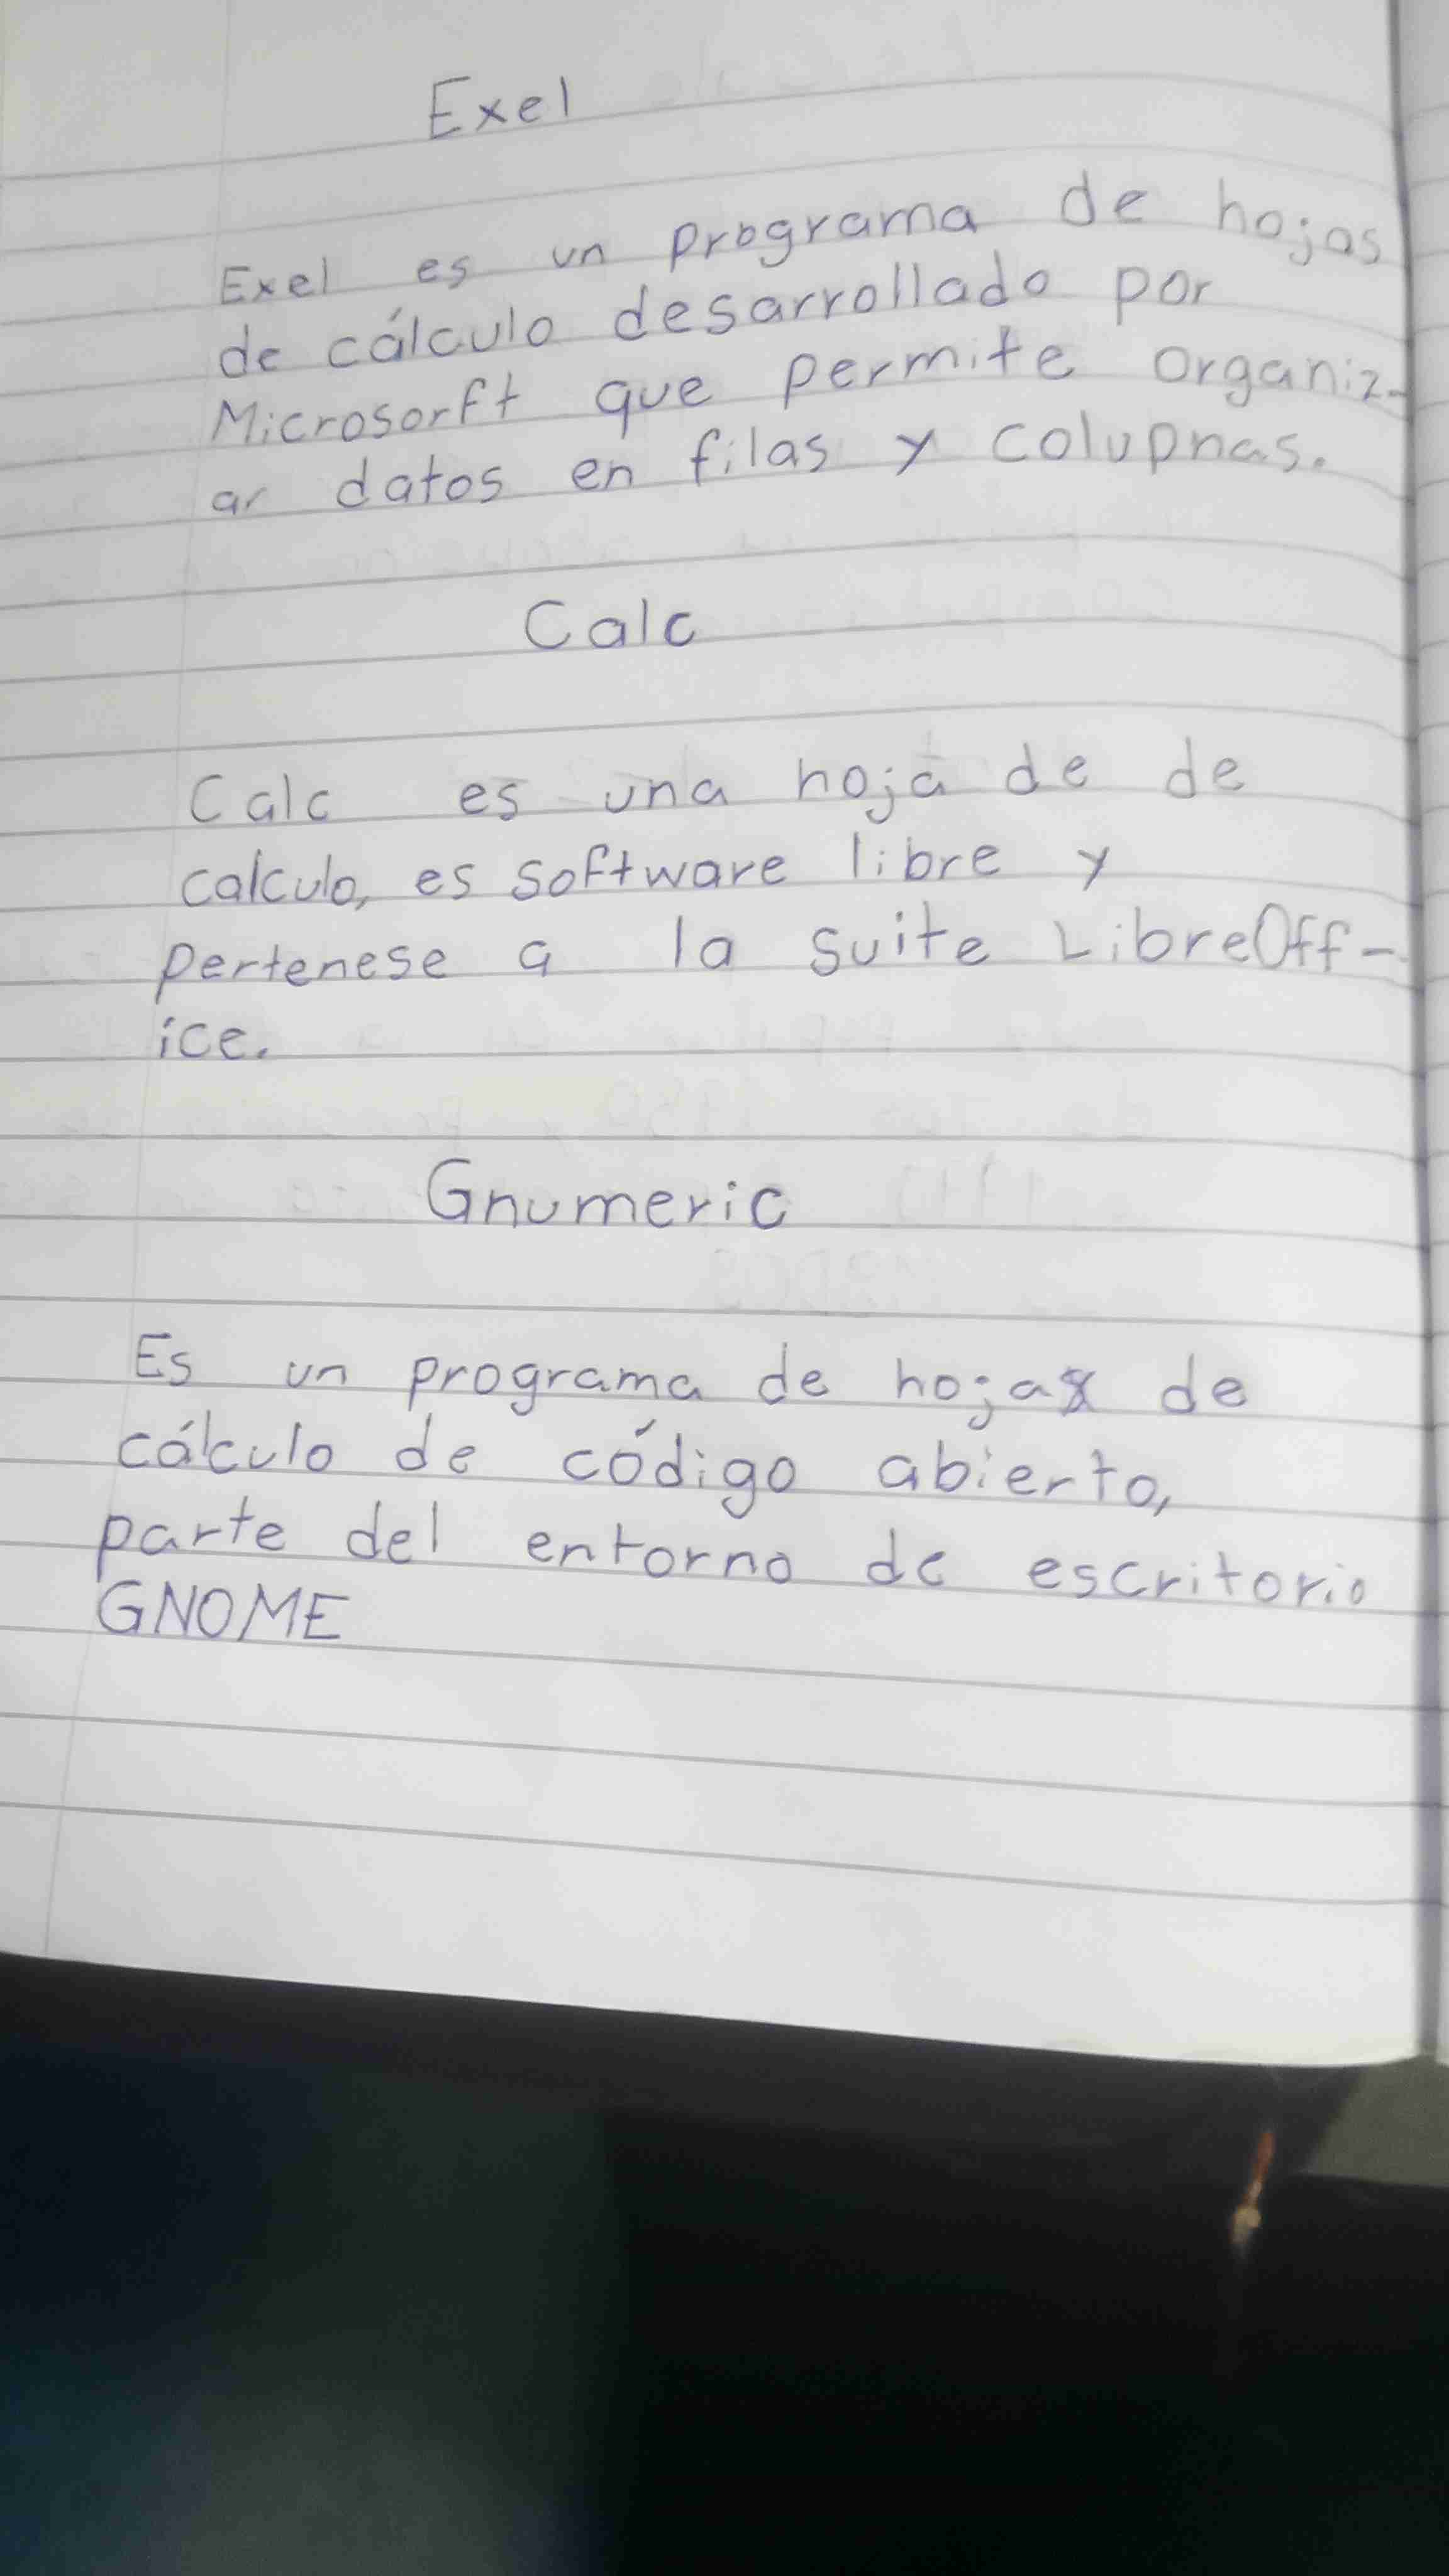 Exel
Exel es un programa de hojas
de cálculo desarrollado por
Microsorft que permite organiz-
ar datos en filas y colupnas.
Calc
Calc es una hoja de de
calculo, es software libre y
pertenese a la suite LibreOff-
ice.
Gnumeric
Es un programa de hojas de
cálculo de código abierto,
parte del entorno de escritorio
GNOME